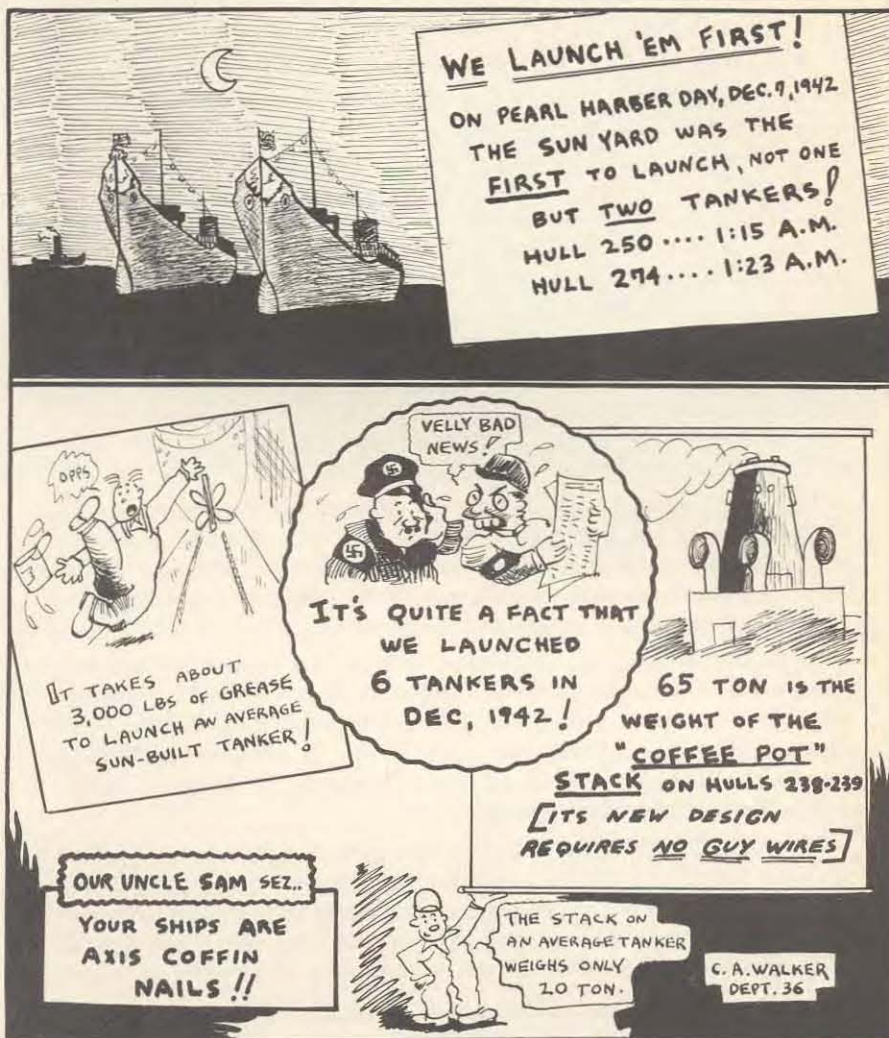 WE LAUNCH 'EM FIRST!
ON PEARL HARBER DAY, DEC. 7, 1942
THE SUN YARD WAS THE
FIRST TO LAUNCH, NOT ONE
BUT TWO TANKERS!
HULL 250 .... 1:15 A.M.
HULL 274 .... 1:23 A.M.
OPPS
IT TAKES ABOUT
3,000 LBS OF GREASE
TO LAUNCH AN AVERAGE
SUN-BUILT TANKER!
VELLY BAD
NEWS!
IT'S QUITE A FACT THAT
WE LAUNCHED
6 TANKERS IN
DEC, 1942!
65 TON IS THE
WEIGHT OF THE
"COFFEE POT"
STACK ON HULLS 238-239
[ITS NEW DESIGN
REQUIRES NO GUY WIRES]
OUR UNCLE SAM SEZ..
YOUR SHIPS ARE
AXIS COFFIN
NAILS!!
THE STACK ON
AN AVERAGE TANKER
WEIGHS ONLY
20 TON.
C. A. WALKER
DEPT. 36